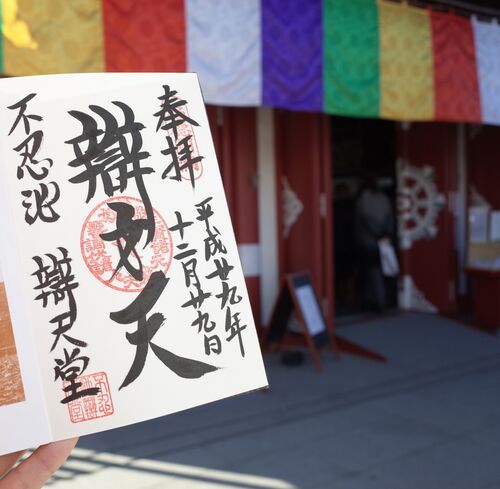 奉拝
平成廿九年
十二月廿九日
辯才天
不忍池
辯天堂